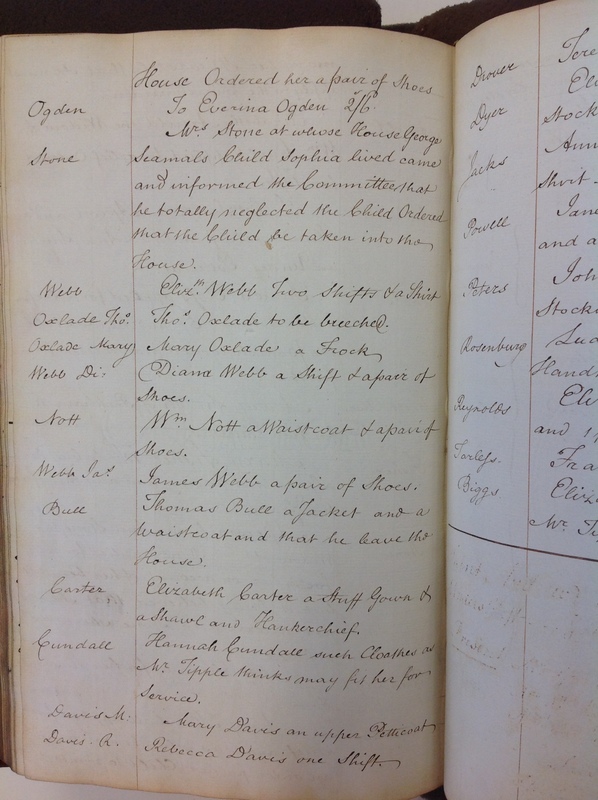 House Ordered her a pair of Shoes
Ogden To Everina Ogden 2/6
Mrs Stone at whose House George
Stone Seamals Child Sophia lived came
and informed the Committee that
he totally neglected the Child Ordered
that the Child be taken into the
House.
Webb Elizth Webb Two Shifts & a Shirt
Oxlade Thos. Thos. Oxlade to be breeched.
Oxlade Mary Mary Oxlade a Frock
Webb Di: Diana Webb a Shift & a pair of
Shoes.
Nott Wm Nott a Waistcoat & a pair of
Shoes.
Webb Jas. James Webb a pair of Shoes.
Bull Thomas Bull a Jacket and a
Waistcoat and that he leave the
House.
Carter Elizabeth Carter a Stuff Gown &
a Shawl and Hankerchief.
Cundall Hannah Cundall such Cloathes as
Mr. Tipple thinks may fit her for
Service.
Davis M: Mary Davis an upper Petticoat
Davis. R. Rebecca Davis one Shift.
Drover
Dyer
Stock
Jacks Ann
Shirt
Powell Jane
and a
Peters John
Stock
Rosenburg
Hand
Reynolds Eli
and
Fra
Biggs Eliz
Mr. Tip